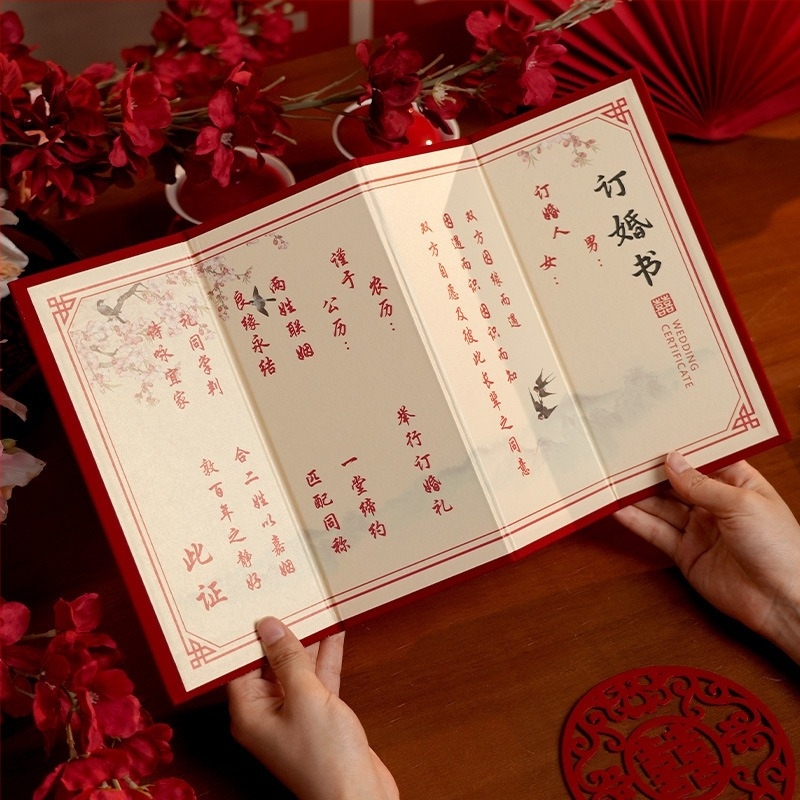 订婚书
囍
WEDDING
CERTIFICATE
男：
订婚人 女：
双方因缘而遇
因遇而识 因识而知
双方自愿及彼此长辈之同意
农历：
谨于 公历：
举行订婚礼
两姓联姻 一堂缔约
良缘永结 匹配同称
礼同掌判 合二姓以嘉姻
诗咏宜家 敦百年之静好
此证
囍